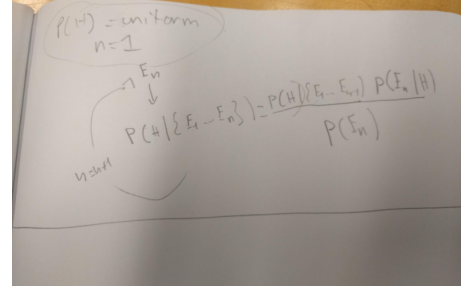 P(H) = uniform
n=1
E_n
P(H|{E_1 ... E_n}) = P(H|{E_1 ... E_{n-1}}) P(E_n|H)
P(E_n)
n=n+1